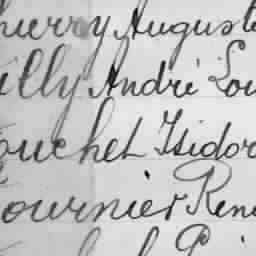 hierry Auguste
illy André Lou
ouchet Isidor
ournier Rene